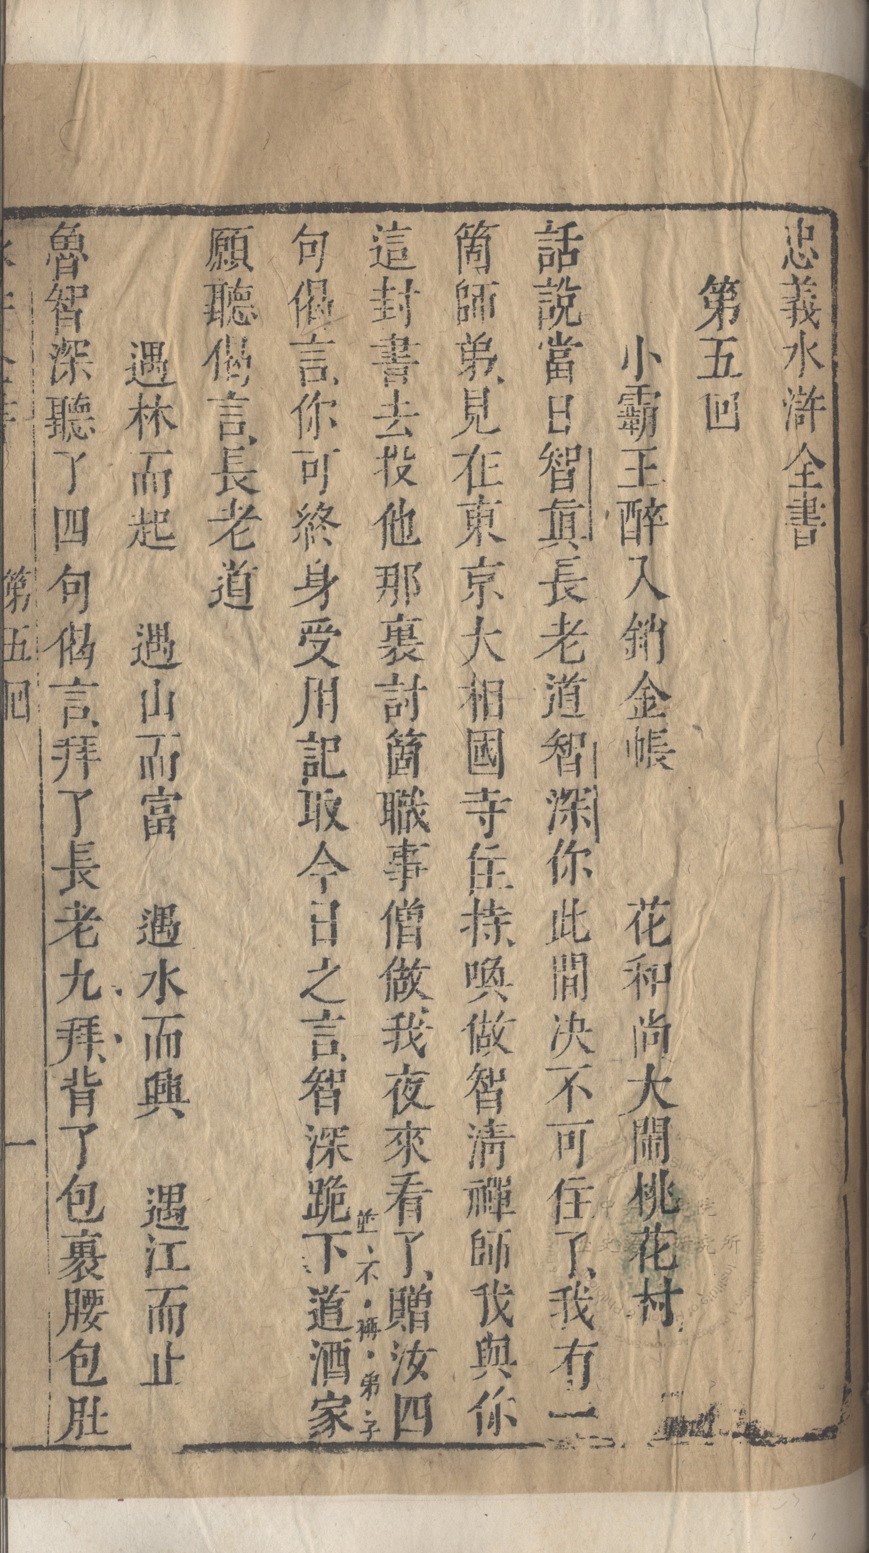 忠義水滸全書
第五回
小霸王醉入銷金帳 花和尚大鬧桃花村
話說當日智眞長老道智深你此間决不可住了、我有一
箇師弟、見在東京大相國寺住持、喚做智清禪師我與你
這封書去投他那裏討箇職事僧做、我夜來看了、贈汝四
並不稱弟子
句偈言、你可終身受用記取今日之言、智深跪下道洒家
願聽偈言、長老道
遇林而起 遇山而富 遇水而興 遇江而止
魯智深聽了四句偈言、拜了長老九拜、背了包裹腰包肚
第五回 一